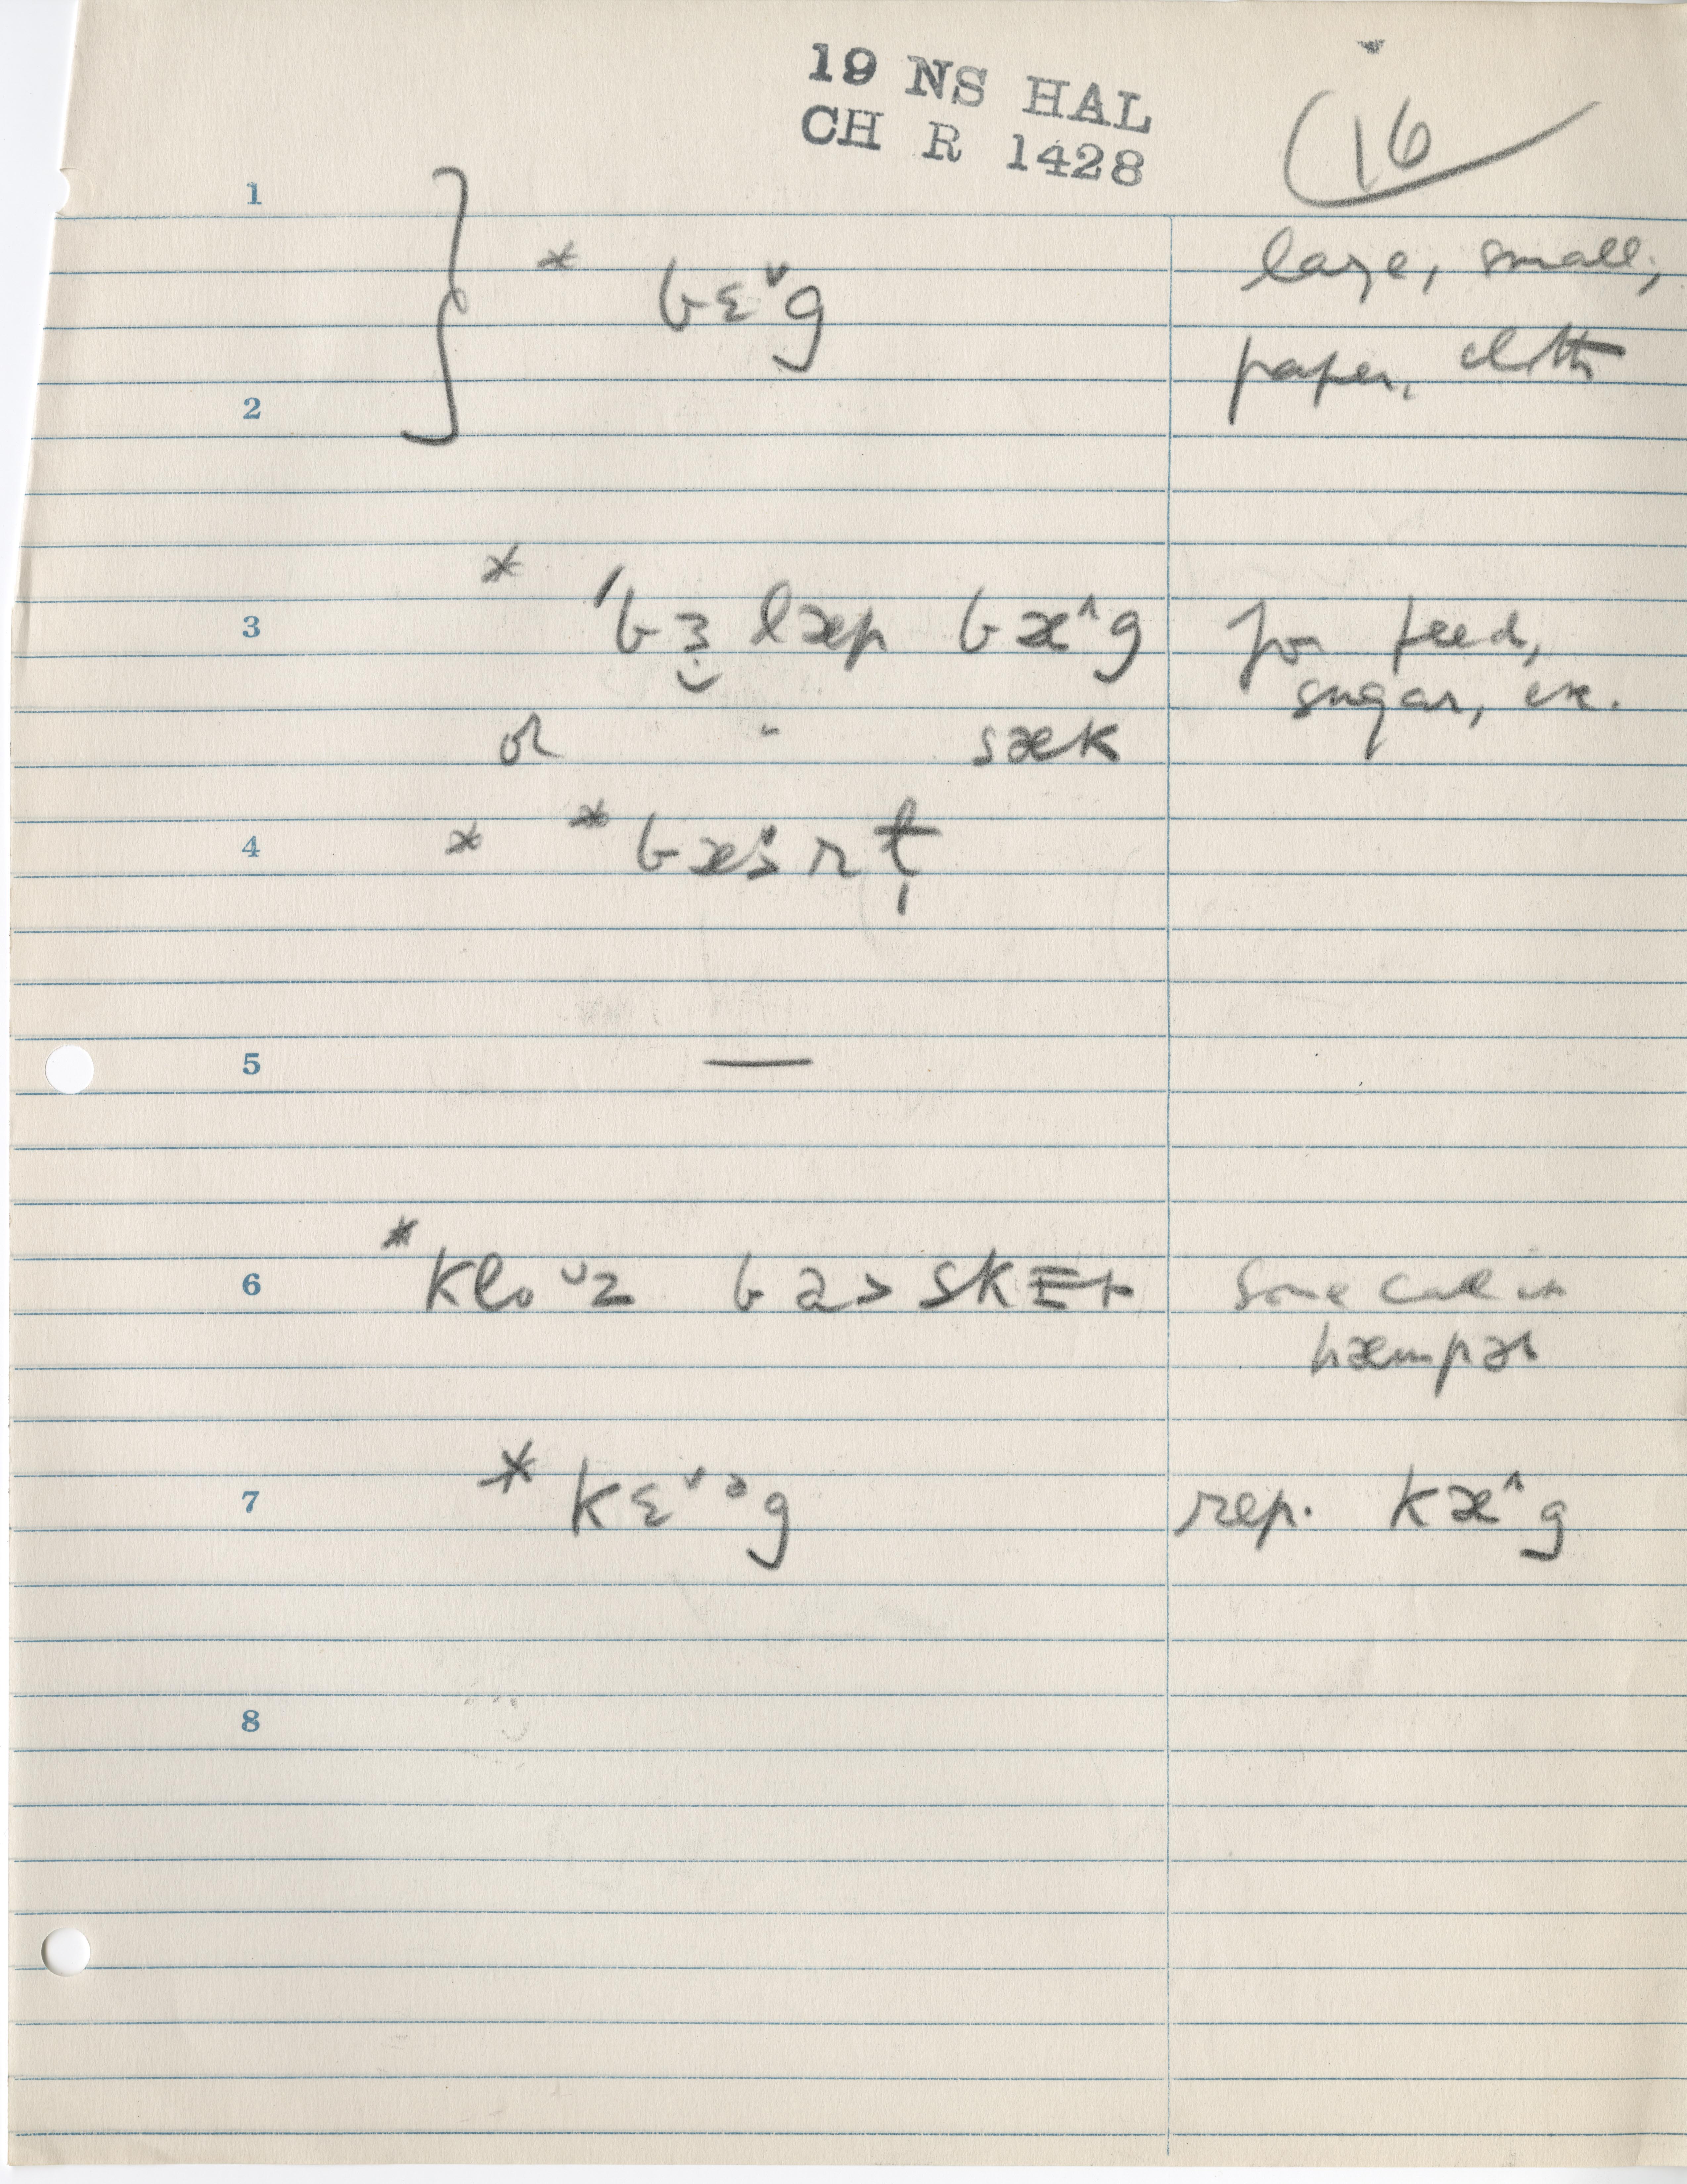 19 NS HAL
CH R 1428
16
1
* bɛ˅g
large, small,
paper, cloth
2
*
3 ˈbɜ̮ læp bæ^g for feed,
sugar, etc.
or " sæk
4 * * bæ
5 —
6 * klo˅z skɪt Some call it
hæmpɚ
7 * kɛ˅ᵊg rep. kæ^g
8